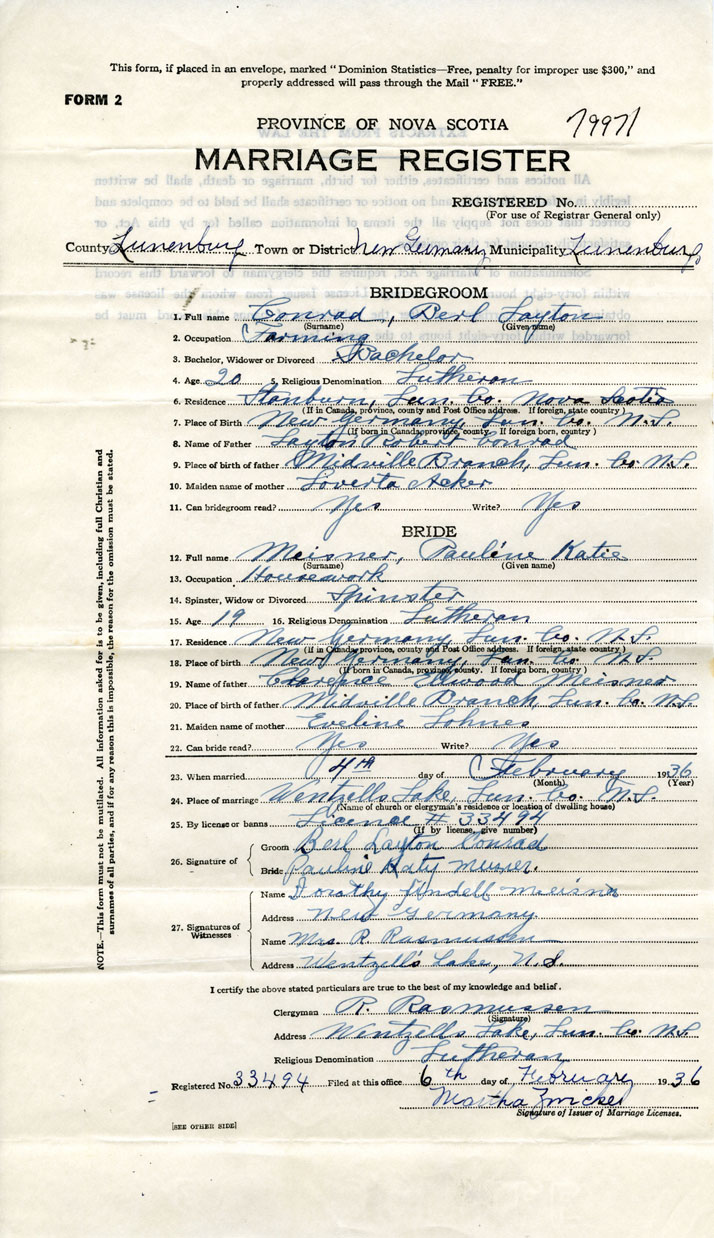 This form, if placed in an envelope, marked "Dominion Statistics—Free, penalty for improper use $300," and
properly addressed will pass through the Mail "FREE."
FORM 2
PROVINCE OF NOVA SCOTIA
79971
MARRIAGE REGISTER
REGISTERED No.
(For use of Registrar General only)
County Lunenburg Town or District New Germany Municipality Lunenburg
BRIDEGROOM
1. Full name Conrad, Berl Layton
(Surname) (Given name)
2. Occupation Farming
3. Bachelor, Widower or Divorced Bachelor
4. Age 20 5. Religious Denomination Lutheran
6. Residence Stanburn, Lun. Co. Nova Scotia
(If in Canada, province, county and Post Office address. If foreign, state country)
7. Place of Birth New Germany, Lun. Co. N.S.
(If born in Canada, province, county. If foreign born, country)
8. Name of Father Layton Robert Conrad
9. Place of birth of father Midville Branch, Lun. Co. N.S.
10. Maiden name of mother Loverta Acker
11. Can bridegroom read? Yes Write? Yes
BRIDE
12. Full name Meisner, Pauline Katie
(Surname) (Given name)
13. Occupation Housework
14. Spinster, Widow or Divorced Spinster
15. Age 19 16. Religious Denomination Lutheran
17. Residence New Germany, Lun. Co. N.S.
(If in Canada, province, county and Post Office address. If foreign, state country)
18. Place of birth New Germany, Lun. Co. N.S.
(If born in Canada, province, county. If foreign born, country)
19. Name of father Clarence Atwood Meisner
20. Place of birth of father Midville Branch, Lun. Co. N.S.
21. Maiden name of mother Eveline Lohnes
22. Can bride read? Yes Write? Yes
23. When married 4th day of February 1936
(Month) (Year)
24. Place of marriage Wentzells Lake, Lun. Co. N.S.
(Name of church or clergyman's residence or location of dwelling house)
25. By license or banns Licence # 33494
(If by license, give number)
26. Signature of
Groom Berl Layton Conrad
Bride Pauline Katy
27. Signatures of Witnesses
Name Dorothy Meisner
Address New Germany
Name Mrs. R. Rasmussen
Address Wentzell's Lake, N.S.
I certify the above stated particulars are true to the best of my knowledge and belief.
Clergyman R. Rasmussen
(Signature)
Address Wentzells Lake, Lun. Co. N.S.
Religious Denomination Lutheran
Registered No. 33494 Filed at this office 6th day of February 1936
Martha Zwicker
Signature of Issuer of Marriage Licenses.
[SEE OTHER SIDE]
NOTE.—This form must not be mutilated. All information asked for is to be given, including full Christian and
surnames of all parties, and if for any reason this is impossible, the reason for the omission must be stated.